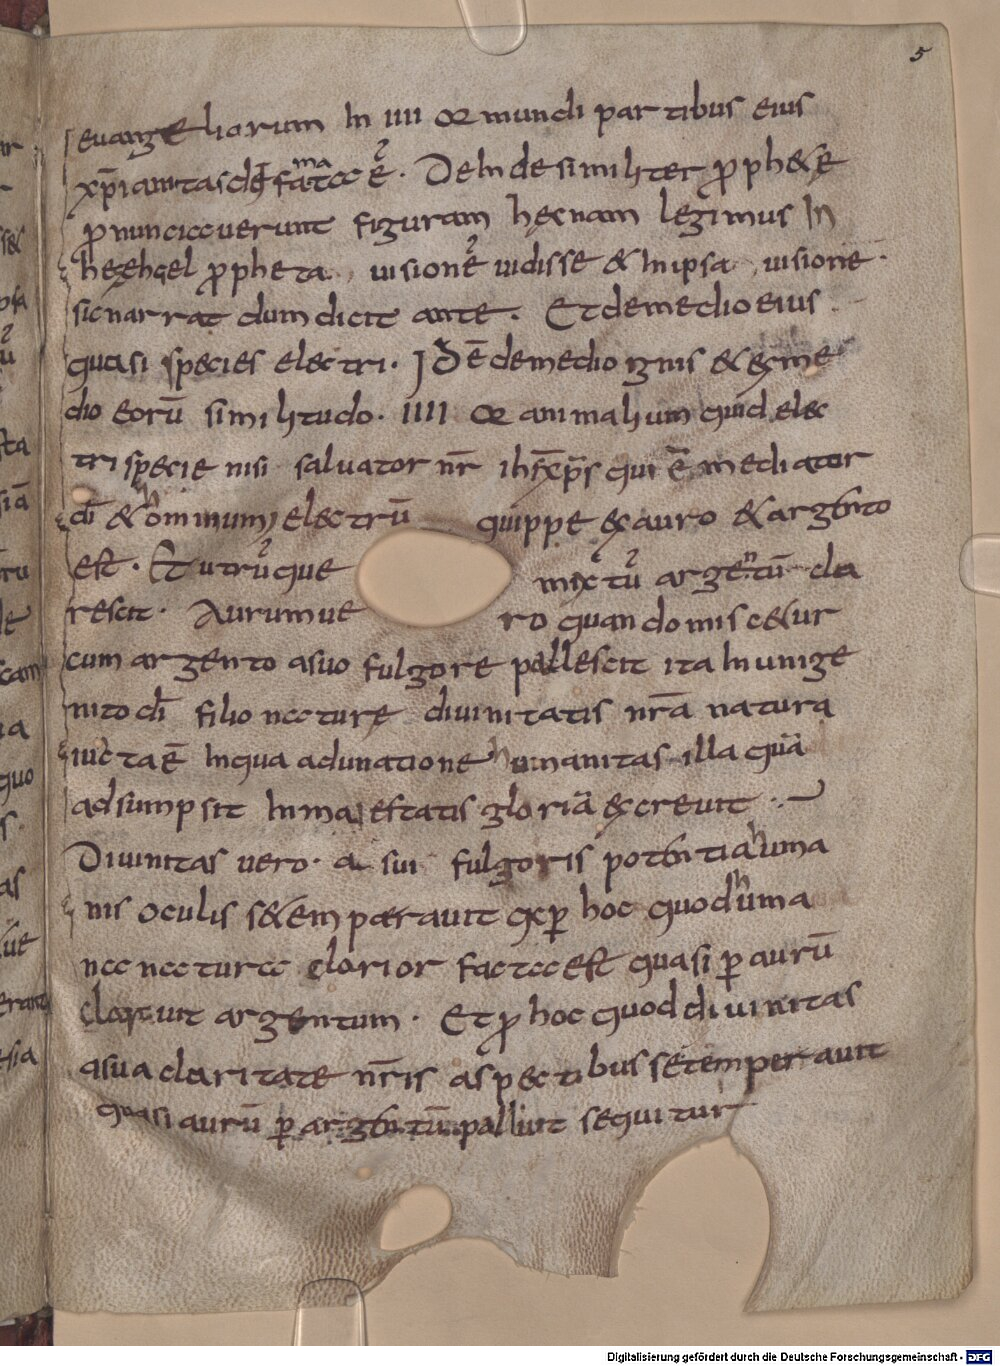 5
euangeliorum In IIII or mundi partibus eius
xp̄ianitas def̄famata ē. DeInde similiter ꝓphetę
ꝓnunciauerunt figuram hęc nam legimus In
hezehiel ꝓpheta uisionē uidisse & In ipsa uisione.
sic narrat dum dicit ante. Et de medio eius
quasi species electri. Id ē de medio ignis & ex me
dio eorū similitudo. IIII or animalium quid elec
tri specie nisi saluator nr̄ ihs̄ xp̄s qui ē mediator
dī & hominum electrū quippe ex auro & argento
est. Et utrūque mixtū argentū cla
rescit. Aurum ue ro quando miscetur
cum argento a suo fulgore pallescit ita In unige
nito dī filio naturę diuinitatis nr̄a natura
iūcta ē In qua adunatione humanitas illa quā
adsumpsit In maiestatis gloriā excreuit
Diuinitas uero. a sui fulgoris potentia huma
nis oculis se temperauit quod huma
na natura clarior facta est quasi ꝑ aurū
argentum. Et ꝓ hoc quod diuinitas
a sua claritate nr̄is aspectibus se temperauit
quasi aurū ꝑ argentū palluit sequitur
Digitalisierung gefördert durch die Deutsche Forschungsgemeinschaft - DFG